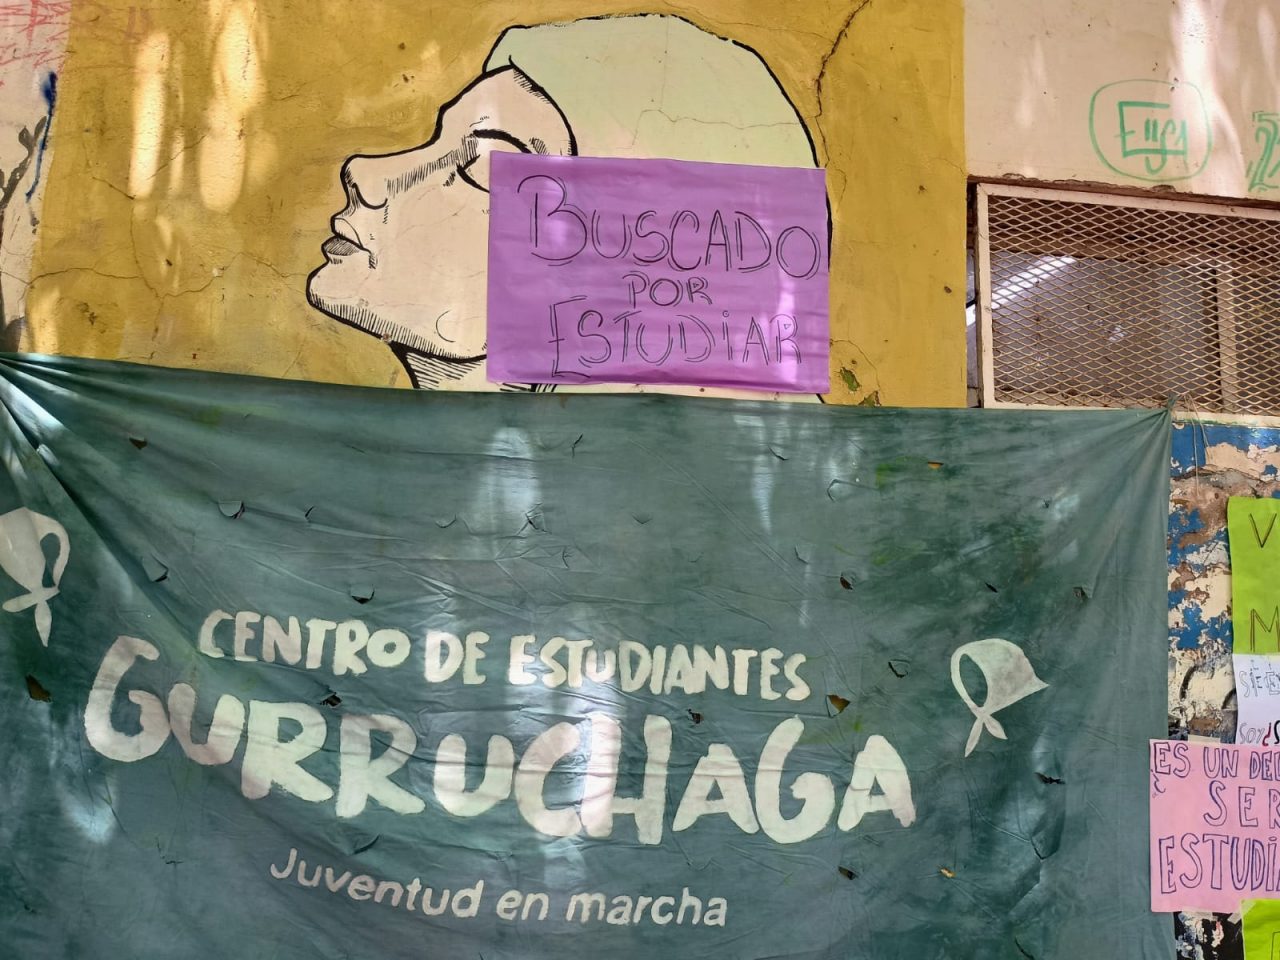 BUSCADO
POR
ESTUDIAR
CENTRO DE ESTUDIANTES
GURRUCHAGA
Juventud en marcha
V
M
SOY ¿S
ES UN DEL
SER
ESTUDIA